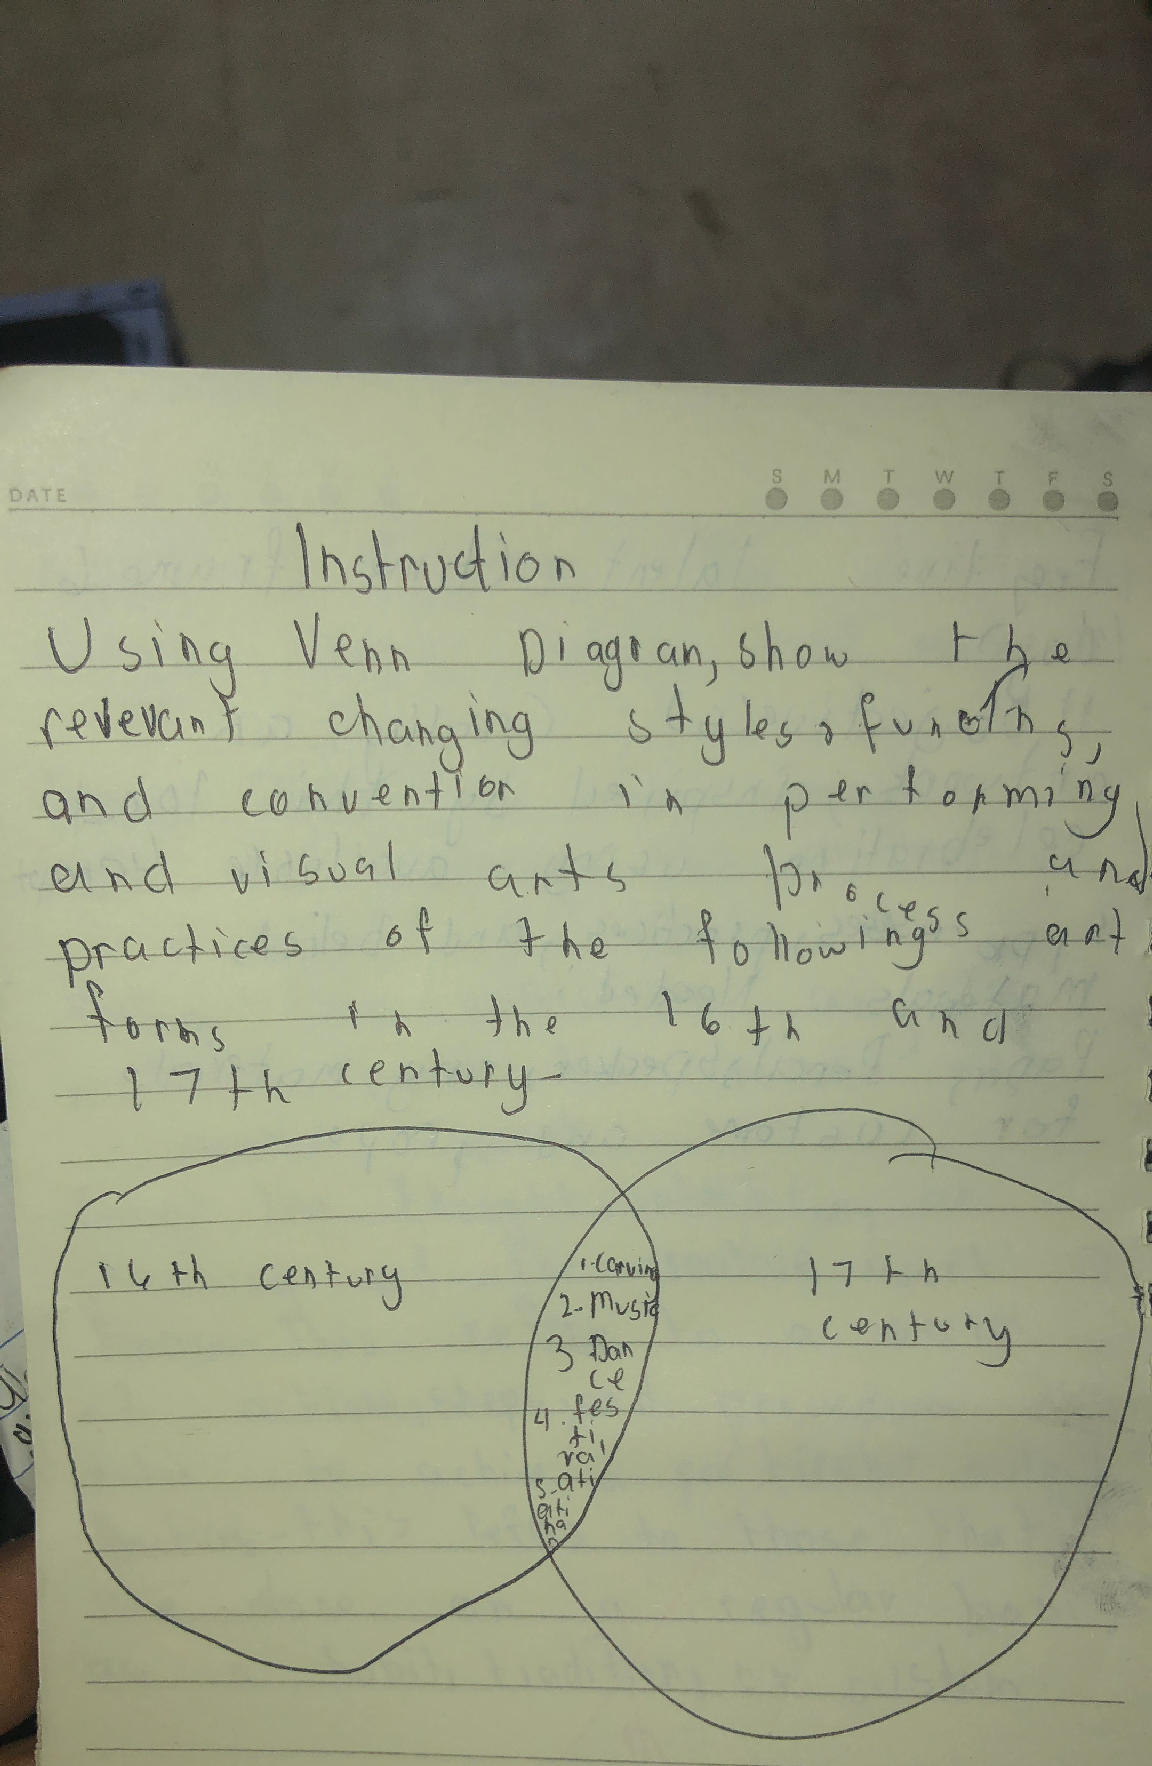 DATE
S M T W T F S
Instruction
Using Venn Diagran, show the
revevant changing styles,
and convention in performing
and visual arts process and
practices of the followings art
forms in the 16th and
17th century-
16th century
1-Carving
2-Music
3 Dan
ce
4. fes
ti
val
5-ati
ati
ha
n
17th
century